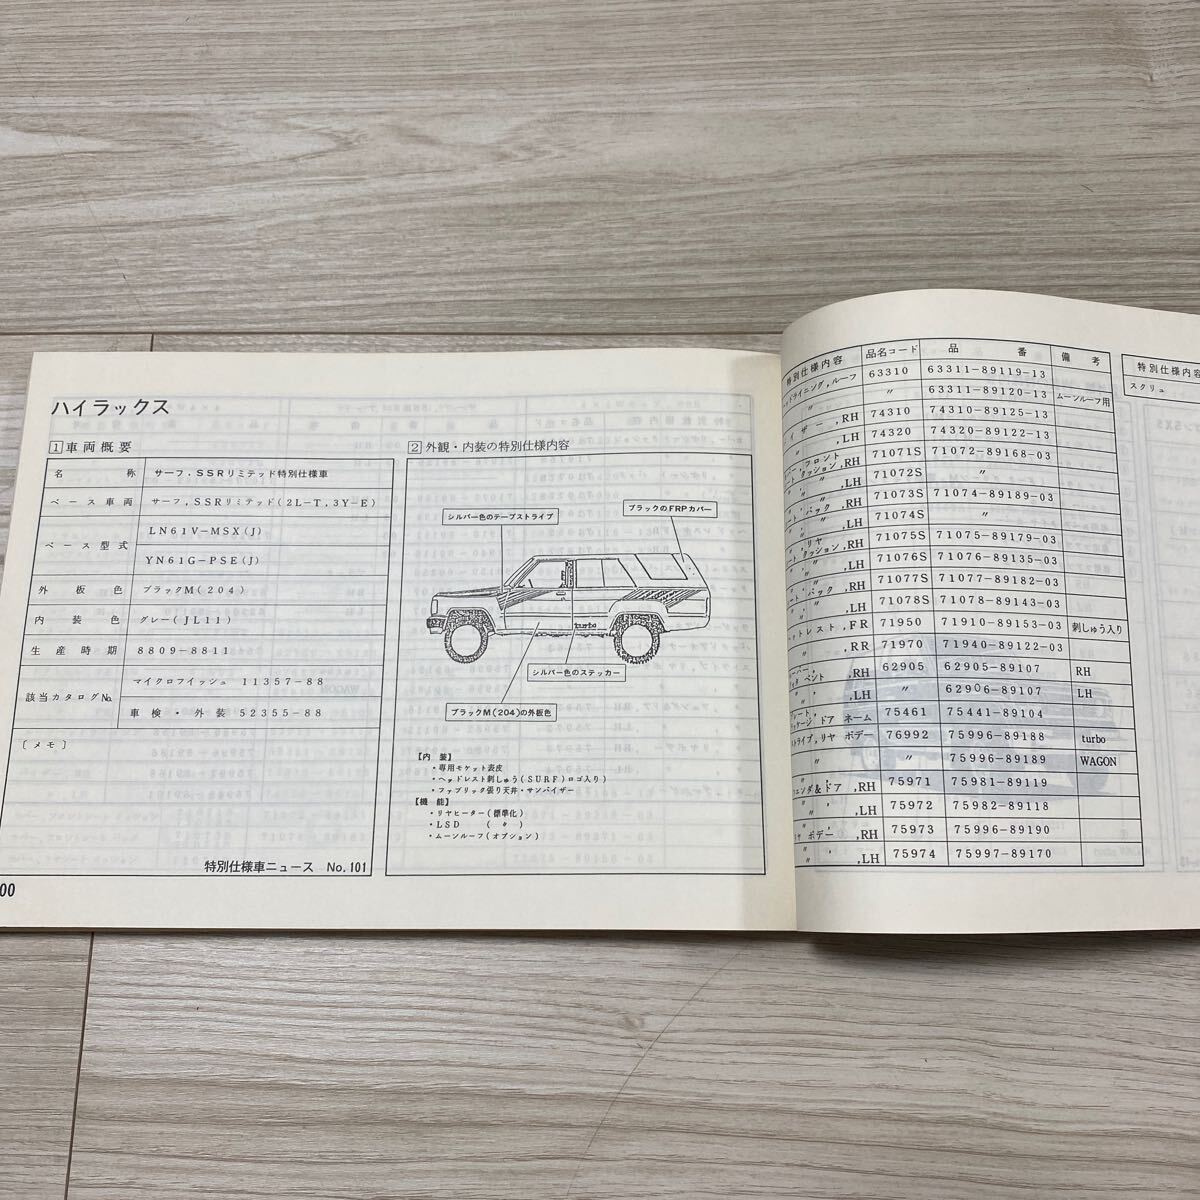 ハイラックス
1 車両概要
名称 サーフ，SSRリミテッド特別仕様車
ベース車両 サーフ，SSRリミテッド(2L-T，3Y-E)
ベース型式 LN61V-MSX(J)
YN61G-PSE(J)
外板色 ブラックM(204)
内装色 グレー(JL11)
生産時期 8809-8811
該当カタログNo. マイクロフィッシュ 11357-88
車検・外装 52355-88
〔メモ〕
特別仕様車ニュース No.101
00
2 外観・内装の特別仕様内容
シルバー色のテープストライプ
ブラックのFRPカバー
turbo
シルバー色のステッカー
ブラックM(204)の外板色
【内装】
・専用モケット表皮
・ヘッドレスト刺しゅう(SURFロゴ入り)
・ファブリック張り天井・サンバイザー
【機能】
・リヤヒーター(標準化)
・LSD (〃)
・ムーンルーフ(オプション)
特別仕様内容 品名コード 品番 備考
ッドライニング，ルーフ 63310 63311-89119-13
〃 〃 63311-89120-13 ムーンルーフ用
イザー，RH 74310 74310-89125-13
，LH 74320 74320-89122-13
フロント クッション，RH 71071S 71072-89168-03
，LH 71072S 〃
バック，RH 71073S 71074-89189-03
，LH 71074S 〃
リヤ クッション，RH 71075S 71075-89179-03
，LH 71076S 71076-89135-03
バック，RH 71077S 71077-89182-03
，LH 71078S 71078-89143-03
ッドレスト，FR 71950 71910-89153-03 刺しゅう入り
，RR 71970 71940-89122-03
ベント，RH 62905 62905-89107 RH
，LH 〃 62906-89107 LH
ドア ネーム 75461 75441-89104
トライプ，リヤ ボデー 76992 75996-89188 turbo
〃 〃 75996-89189 WAGON
ェンダ&ドア，RH 75971 75981-89119
，LH 75972 75982-89118
ボデー，RH 75973 75996-89190
，LH 75974 75997-89170
特別仕様内容
スクリュ